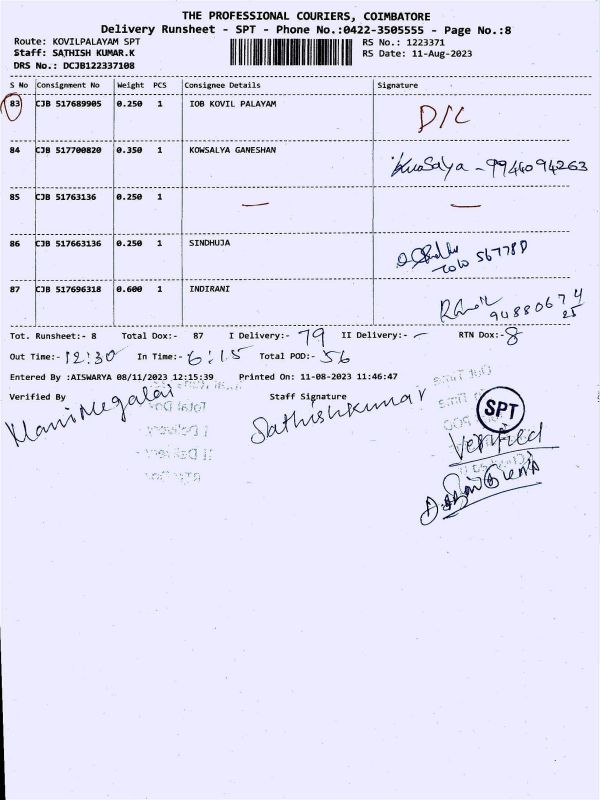 THE PROFESSIONAL COURIERS, COIMBATORE
Delivery Runsheet - SPT - Phone No.:0422-3505555 - Page No.:8
Route: KOVILPALAYAM SPT
RS No.: 1223371
Staff: SATHISH KUMAR.K
RS Date: 11-Aug-2023
DRS No.: DCJB122337108
S No Consignment No Weight PCS Consignee Details Signature
83 CJB 517689905 0.250 1 IOB KOVIL PALAYAM D/C
84 CJB 517700820 0.350 1 KOWSALYA GANESHAN
85 CJB 51763136 0.250 1 — —
86 CJB 517663136 0.250 1 SINDHUJA
87 CJB 517696318 0.600 1 INDIRANI
Tot. Runsheet:- 8 Total Dox:- 87 I Delivery:- 79 II Delivery:- - RTN Dox:- 8
Out Time:- 12:30 In Time:- 6:15 Total POD:- 56
Entered By :AISWARYA 08/11/2023 12:15:39 Printed On: 11-08-2023 11:46:47
Verified By Staff Signature
Manimegalai Sathishkumar
SPT
Verified